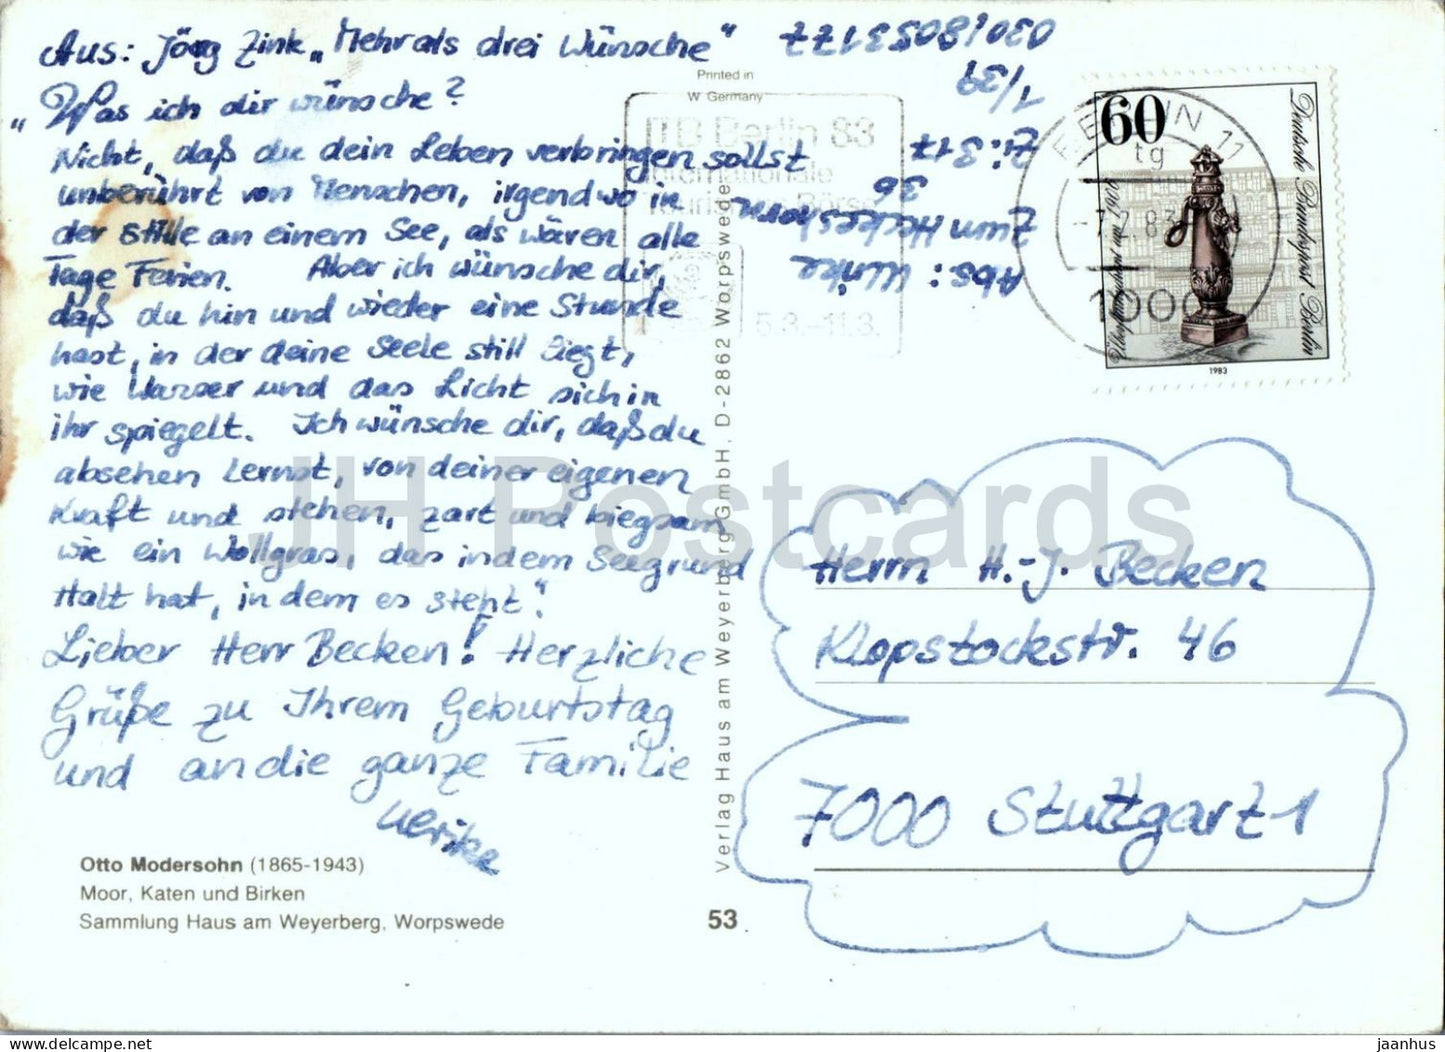 Aus: Jörg Zink „Mehr als drei Wünsche"
„Was ich dir wünsche?
Nicht, daß du dein Leben verbringen sollst
unberührt von Menschen, irgendwo in
der Stille an einem See, als wären alle
Tage Ferien. Aber ich wünsche dir,
daß du hin und wieder eine Stunde
hast, in der deine Seele still liegt,
wie Wasser und das Licht sich in
ihr spiegelt. Ich wünsche dir, daß du
absehen lernst, von deiner eigenen
Kraft und stehen, zart und biegsam
wie ein Wollgras, das in dem Seegrund
Halt hat, in dem es steht."
Lieber Herr Becken! Herzliche
Grüße zu Ihrem Geburtstag
und an die ganze Familie
Ulrike
Otto Modersohn (1865-1943)
Moor, Katen und Birken
Sammlung Haus am Weyerberg, Worpswede
53
Verlag Haus am Weyerberg GmbH, D-2862 Worpswede
Printed in
W. Germany
ITB Berlin 83
Internationale
Tourismus Börse
5.3.–11.3.
Abs: Ulrike
Zum Heckeshorn
36
Zi: 317
1/39
BERLIN 11
tg
-7.2.83
1000
60
Deutsche Bundespost Berlin
1983
Herrn H.-J. Becken
Klopstockstr. 46
7000 Stuttgart 1
JH Postcards
jaanhus